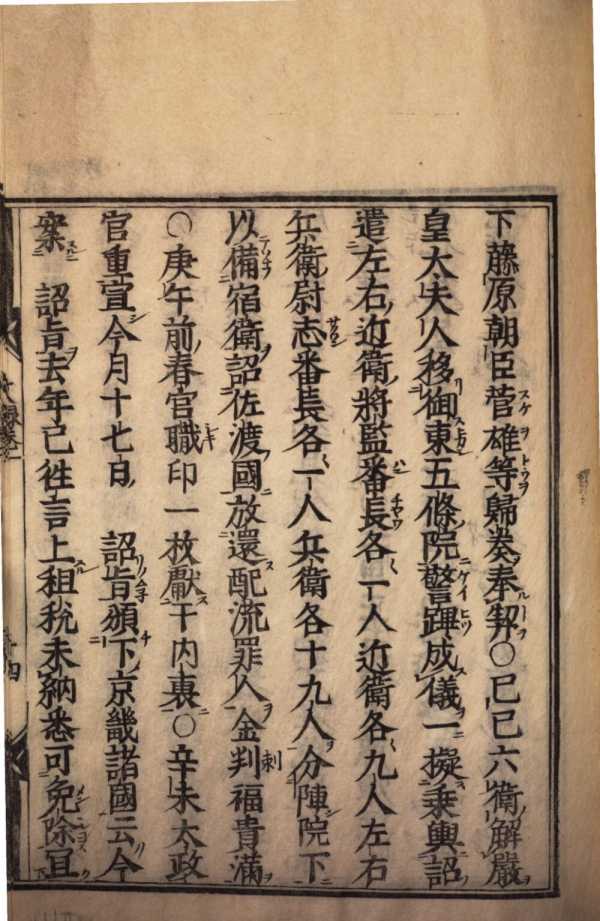 下藤原朝臣菅雄等歸奏奉契○己巳六衛解嚴
皇太夫人移御東五條院警蹕成儀一擬乘輿詔
遣左右近衛將監番長各一人近衛各九人左右
兵衛尉志番長各一人兵衛各十九人分陣院下
以備宿衛詔佐渡國放還配流罪人金判福貴滿
○庚午前春官職印一枚獻于内裏○辛未太政
官重宣今月十七日　詔旨頒下京畿諸國云今
案　詔旨去年已往言上租税未納悉可免除宜